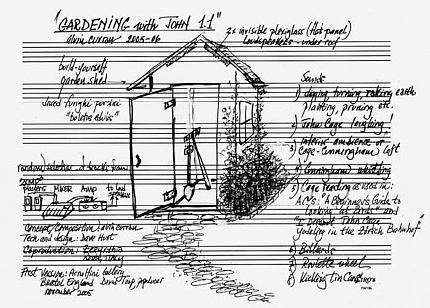 "GARDENING with JOHN 1.1"
Alvin Curran 2005-06
2x invisible plexiglass (flat panel)
loudspeakers - under roof
build-yourself
garden shed
dried funghi porcini
"boletus edulis"
Sounds
1) digging, turning, raking earth
planting, pruning etc.
2) John Cage laughing!
3) interior ambience of
Cage-Cunningham loft
4) Cunningham whistling
5) Cage reading as used in:
AC's: "A Beginner's Guide to
looking at Birds" and
"I Dreamt John Cage
Yodeling in the Zürich Bahnhof"
6) Billiards
7) Roulette wheel
8) Kicking Tin Cans
random selection of tracks from
Players MIXER AMP to loud
speakers
Concept, Composition: Alvin Curran
Tech and design: Dave Hunt
Coproduction:
First Version: Arnolfini Gallery
Bristol England
November 2005